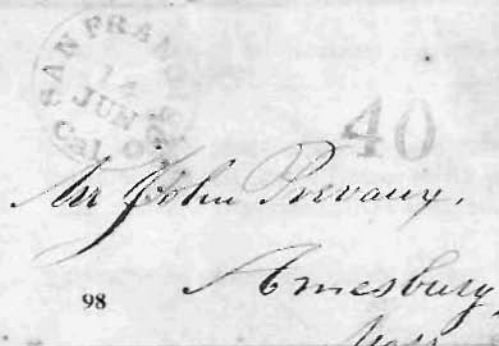 SAN FRANCISCO
14
JUN
Cal.
40
Mr John Prevaux,
Amesbury,
98
Mass